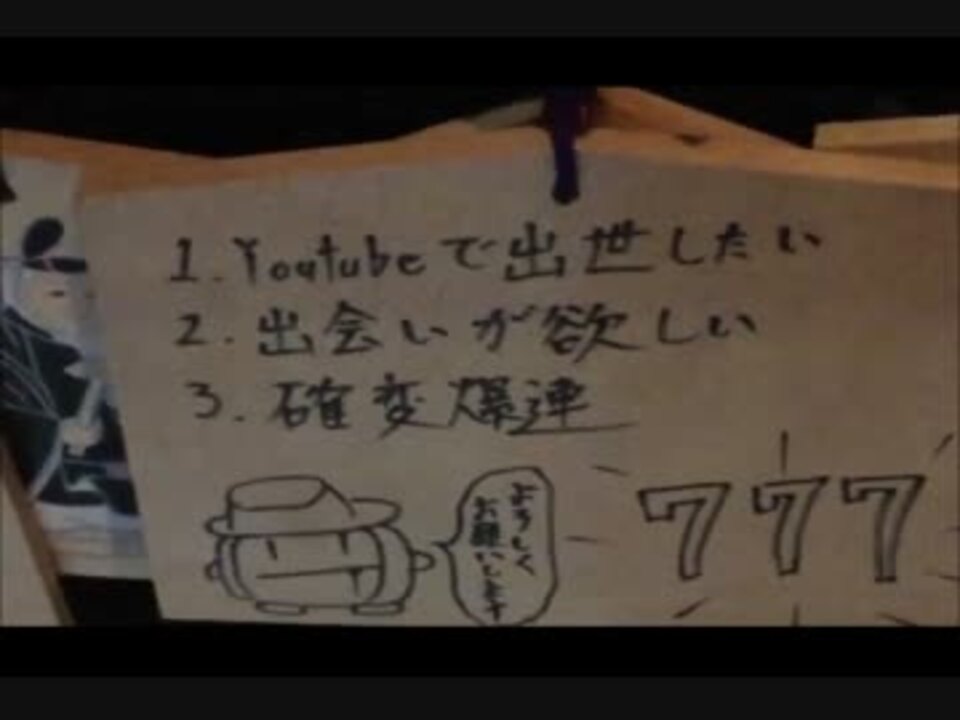 1. Youtubeで出世したい
2. 出会いが欲しい
3. 確変爆連
よろしく
お願いします
777